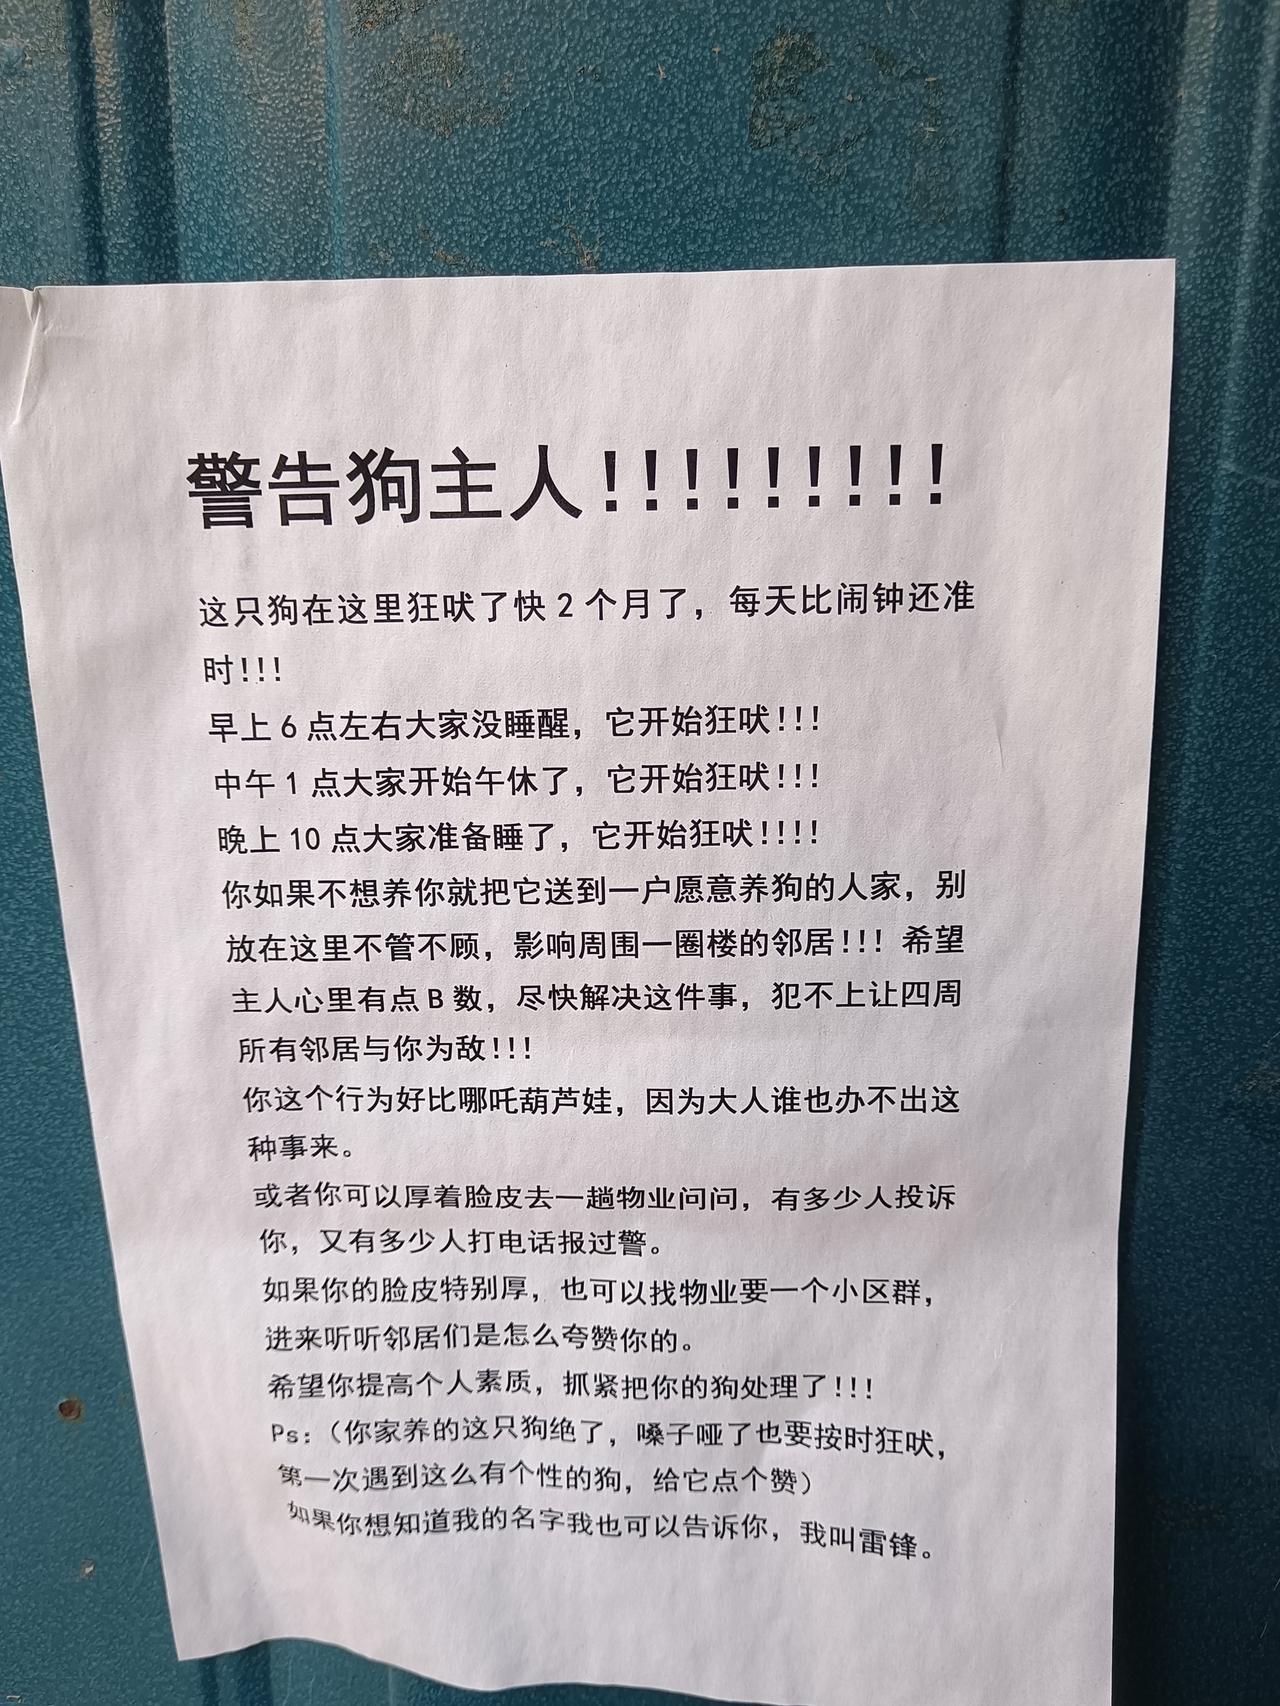 警告狗主人!!!!!!!!!
这只狗在这里狂吠了快 2 个月了，每天比闹钟还准
时!!!
早上 6 点左右大家没睡醒，它开始狂吠!!!
中午 1 点大家开始午休了，它开始狂吠!!!
晚上 10 点大家准备睡了，它开始狂吠!!!!
你如果不想养你就把它送到一户愿意养狗的人家，别
放在这里不管不顾，影响周围一圈楼的邻居!!! 希望
主人心里有点 B 数，尽快解决这件事，犯不上让四周
所有邻居与你为敌!!!
你这个行为好比哪吒葫芦娃，因为大人谁也办不出这
种事来。
或者你可以厚着脸皮去一趟物业问问，有多少人投诉
你，又有多少人打电话报过警。
如果你的脸皮特别厚，也可以找物业要一个小区群，
进来听听邻居们是怎么夸赞你的。
希望你提高个人素质，抓紧把你的狗处理了!!!
Ps:（你家养的这只狗绝了，嗓子哑了也要按时狂吠，
第一次遇到这么有个性的狗，给它点个赞）
如果你想知道我的名字我也可以告诉你，我叫雷锋。